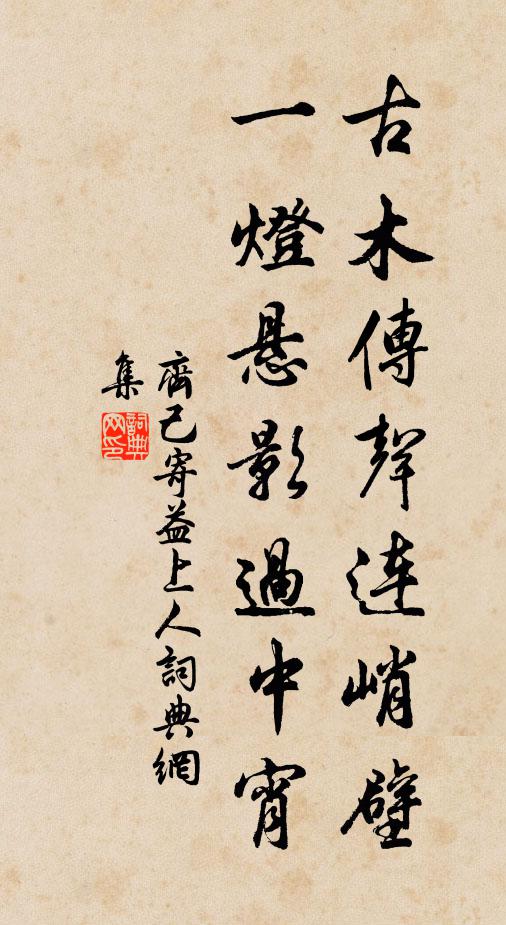 古木傳聲連峭壁
一燈懸影過中宵
齊己寄益上人詞典網
集
詞典網印